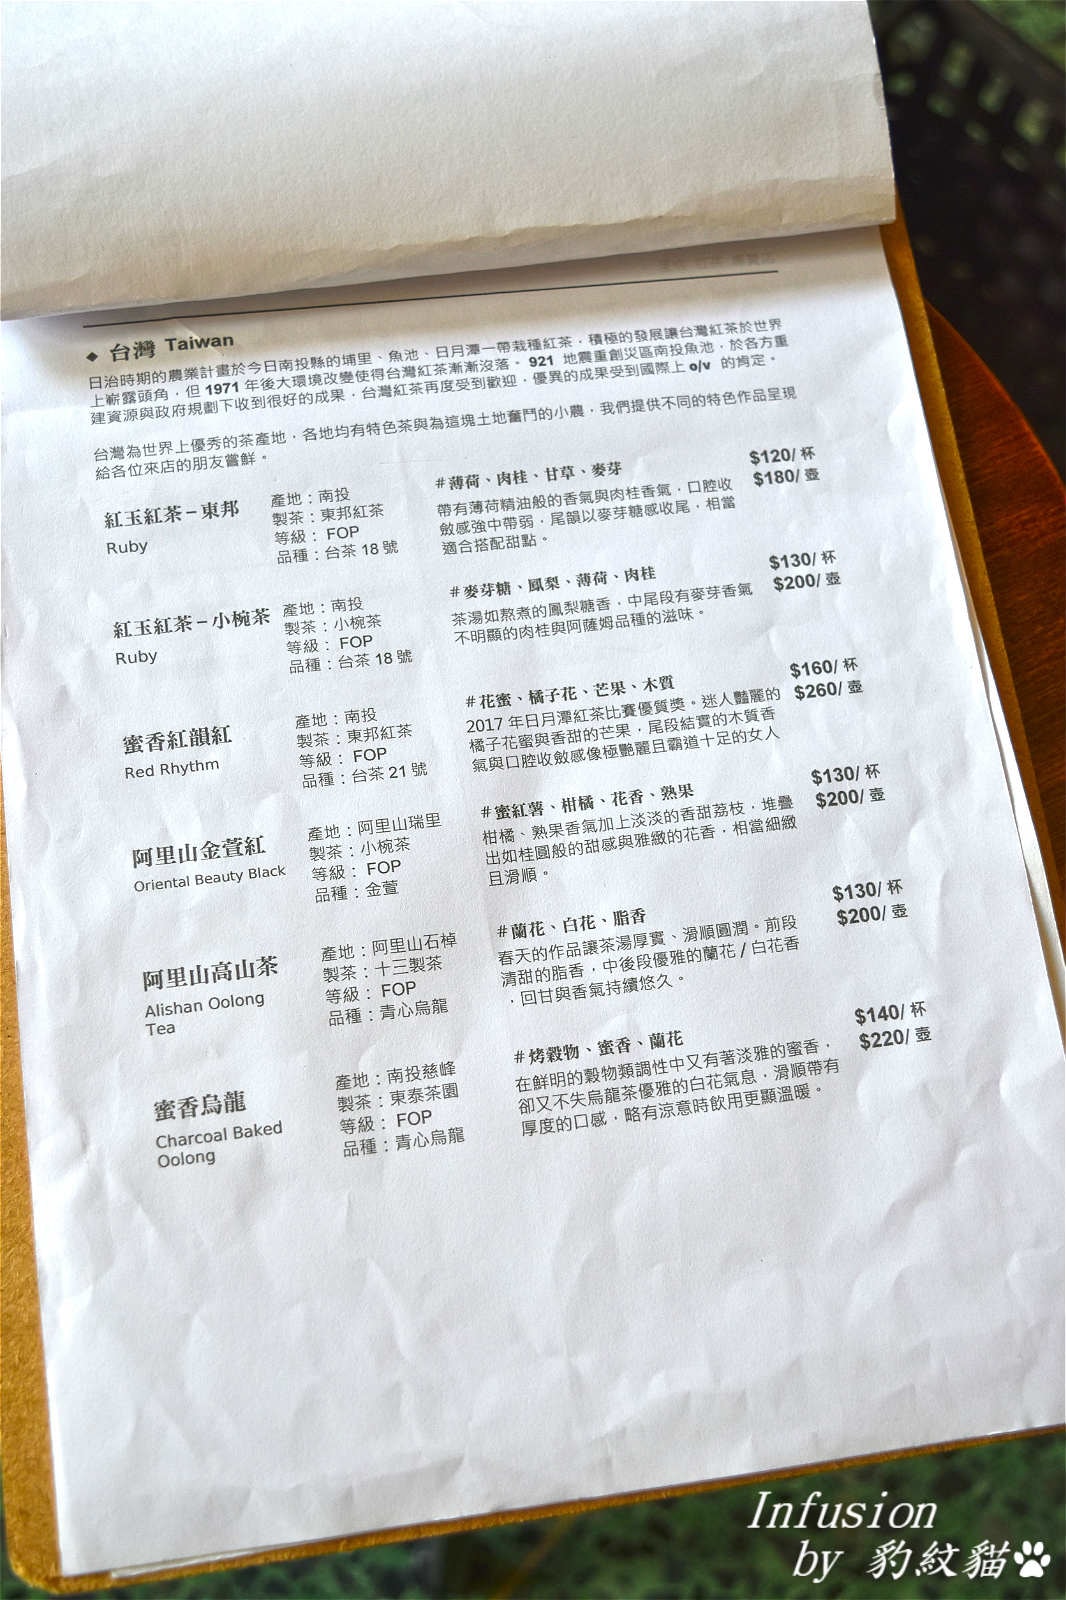 ◆ 台灣 Taiwan
日治時期的農業計畫於今日南投縣的埔里、魚池、日月潭一帶栽種紅茶，積極的發展讓台灣紅茶於世界
上嶄露頭角，但 1971 年後大環境改變使得台灣紅茶漸漸沒落。921 地震重創災區南投魚池，於各方重
建資源與政府規劃下收到很好的成果，台灣紅茶再度受到歡迎，優異的成果受到國際上 o/v 的肯定。
台灣為世界上優秀的茶產地，各地均有特色茶與為這塊土地奮鬥的小農，我們提供不同的特色作品呈現
給各位來店的朋友嘗鮮。
紅玉紅茶－東邦
Ruby
產地：南投
製茶：東邦紅茶
等級： FOP
品種：台茶 18 號
#薄荷、肉桂、甘草、麥芽
帶有薄荷精油般的香氣與肉桂香氣，口腔收
斂感強中帶弱，尾韻以麥芽糖感收尾，相當
適合搭配甜點。
$120/ 杯
$180/ 壺
紅玉紅茶－小椀茶
Ruby
產地：南投
製茶：小椀茶
等級： FOP
品種：台茶 18 號
#麥芽糖、鳳梨、薄荷、肉桂
茶湯如熬煮的鳳梨糖香，中尾段有麥芽香氣
不明顯的肉桂與阿薩姆品種的滋味。
$130/ 杯
$200/ 壺
蜜香紅韻紅
Red Rhythm
產地：南投
製茶：東邦紅茶
等級： FOP
品種：台茶 21 號
#花蜜、橘子花、芒果、木質
2017 年日月潭紅茶比賽優質獎。迷人豔麗的
橘子花蜜與香甜的芒果，尾段結實的木質香
氣與口腔收斂感像極艷麗且霸道十足的女人
$160/ 杯
$260/ 壺
阿里山金萱紅
Oriental Beauty Black
產地：阿里山瑞里
製茶：小椀茶
等級： FOP
品種：金萱
#蜜紅薯、柑橘、花香、熟果
柑橘、熟果香氣加上淡淡的香甜荔枝，堆疊
出如桂圓般的甜感與雅緻的花香，相當細緻
且滑順。
$130/ 杯
$200/ 壺
阿里山高山茶
Alishan Oolong
Tea
產地：阿里山石棹
製茶：十三製茶
等級： FOP
品種：青心烏龍
#蘭花、白花、脂香
春天的作品讓茶湯厚實、滑順圓潤。前段
清甜的脂香，中後段優雅的蘭花 / 白花香
，回甘與香氣持續悠久。
$130/ 杯
$200/ 壺
蜜香烏龍
Charcoal Baked
Oolong
產地：南投慈峰
製茶：東泰茶園
等級： FOP
品種：青心烏龍
#烤穀物、蜜香、蘭花
在鮮明的穀物類調性中又有著淡雅的蜜香，
卻又不失烏龍茶優雅的白花氣息，滑順帶有
厚度的口感，略有涼意時飲用更顯溫暖。
$140/ 杯
$220/ 壺
Infusion
by 豹紋貓